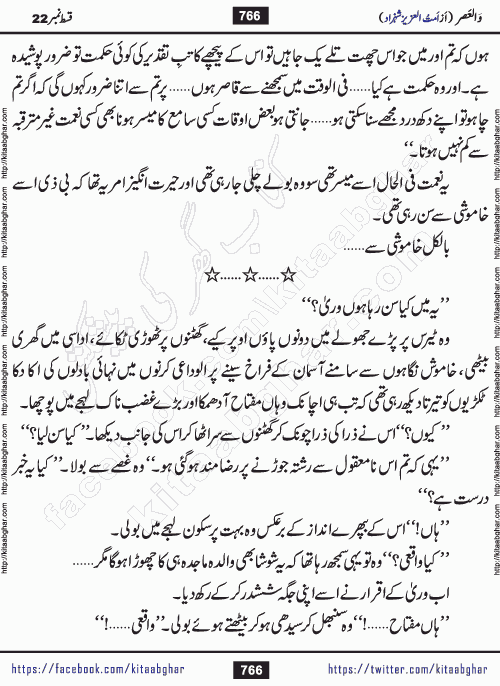 وَالعَصر (از اَمتُ العزیز شہزاد) 766 قسط نمبر 22
ہوں کہ تم اور میں جو اس چھت تلے یک جا ہیں تو اس کے پیچھے کاتبِ تقدیر کی کوئی حکمت تو ضرور پوشیدہ
ہے۔ اور وہ حکمت ہے کیا...... فی الوقت میں سمجھنے سے قاصر ہوں...... پر تم سے اتنا ضرور کہوں گی کہ اگر تم
چاہو تو اپنے دکھ درد مجھے سنا سکتی ہو...... جانتی ہو بعض اوقات کسی سامع کا میسر ہونا بھی کسی نعمت غیر مترقبہ
سے کم نہیں ہوتا۔‘‘
یہ نعمت فی الحال اسے میسر تھی سو وہ بولے چلی جا رہی تھی اور حیرت انگیز امر یہ تھا کہ بی ڈی اسے
خاموشی سے سن رہی تھی۔
بالکل خاموشی سے......
☆......☆......☆
’’یہ میں کیا سن رہا ہوں وریٰ؟‘‘
وہ ٹیرس پر پڑے جھولے میں دونوں پاؤں اوپر کیے، گھٹنوں پر ٹھوڑی ٹکائے، اداسی میں گھری
بیٹھی، خاموش نگاہوں سے سامنے آسمان کے فراخ سینے پر الوداعی کرنوں میں نہائی بادلوں کی اکا دکا
ٹکڑیوں کو تیرتا دیکھ رہی تھی کہ تب ہی اچانک وہاں مفتاح آدھمکا اور بڑے غضب ناک لہجے میں پوچھا۔
’’کیوں؟‘‘ اس نے ذرا کی ذرا چونک کر گھٹنوں سے سر اٹھا کر اس کی جانب دیکھا۔ ’’کیا سن لیا؟‘‘
’’یہی کہ تم اس نامعقول سے رشتہ جوڑنے پر رضا مند ہو گئی ہو۔‘‘ وہ غصے سے بولا۔ ’’کیا یہ خبر
درست ہے؟‘‘
’’ہاں!‘‘ اس کے بپھرے انداز کے برعکس وہ بہت پر سکون لہجے میں بولی۔
’’کیا واقعی؟‘‘ وہ تو یہی سمجھ رہا تھا کہ یہ شوشا بھی والدہ ماجدہ ہی کا چھوڑا ہوگا مگر......
اب وریٰ کے اقرار نے اسے اپنی جگہ ششدر کر کے رکھ دیا۔
’’ہاں مفتاح......!‘‘ وہ سنبھل کر سیدھی ہو کر بیٹھتے ہوئے بولی۔ ’’واقعی......!‘‘
https://facebook.com/kitaabghar 766 https://twitter.com/kitaabghar
http://kitaabghar.com http://kitaabghar.com http://kitaabghar.com http://kitaabghar.com
http://kitaabghar.com http://kitaabghar.com http://kitaabghar.com http://kitaabghar.com
کتاب گھر کی پیشکش
kitaabghar.com
facebook.com/kitaabghar